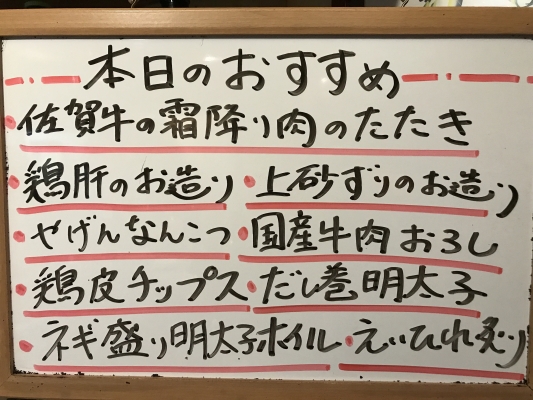 本日のおすすめ
・佐賀牛の霜降り肉のたたき
・鶏肝のお造り ・上砂ずりのお造り
・やげんなんこつ ・国産牛肉おろし
・鶏皮チップス ・だし巻明太子
・ネギ盛り明太子ホイル ・えいひれ炙り